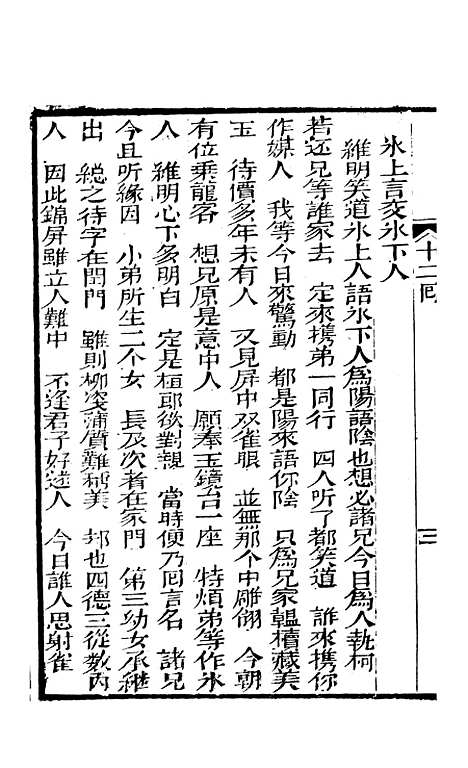 氷上言交氷下人
維明笑道氷上人語氷下人爲陽語陰也想必諸兄今日爲人執柯
若还兄等誰家去　定來携弟一同行　四人听了都笑道　誰來携你
作媒人　我等今日來驚動　都是陽來語你陰　只爲兄家韞櫝藏美
玉　待價多年未有人　又見屏中双雀眼　並無那个中雕翎　今朝
有位乗龍客　想兄原是意中人　願奉玉鏡台一座　特煩弟等作氷
人　維明心下多明白　定是桓耶欲對親　當時便乃囘言名　諸兄
今且听縁因　小弟所生二个女　長及次者在家門　第三幼女承継
出　総之待字在閨門　雖則柳姿蒲質難称美　却也四德三從教内
人　因此錦屏雖立人難中　不逢君子好逑人　今日誰人思射雀
十二囘
三